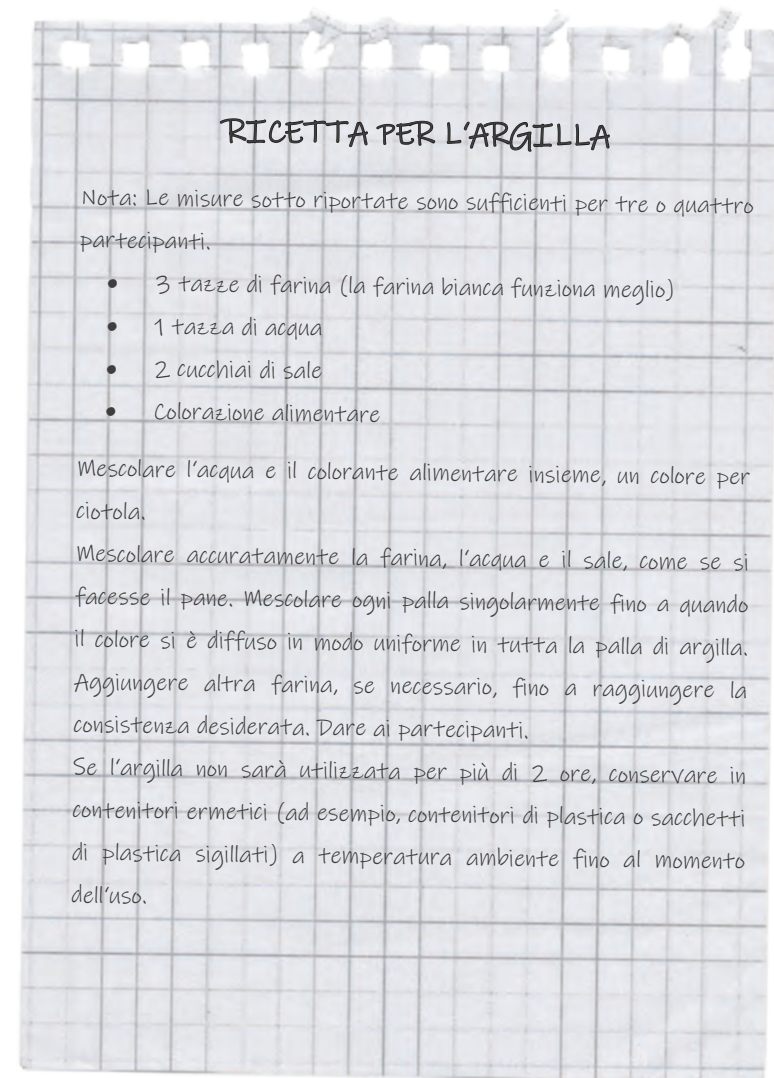 RICETTA PER L'ARGILLA
Nota: Le misure sotto riportate sono sufficienti per tre o quattro
partecipanti.
• 3 tazze di farina (la farina bianca funziona meglio)
• 1 tazza di acqua
• 2 cucchiai di sale
• Colorazione alimentare
Mescolare l'acqua e il colorante alimentare insieme, un colore per
ciotola.
Mescolare accuratamente la farina, l'acqua e il sale, come se si
facesse il pane. Mescolare ogni palla singolarmente fino a quando
il colore si è diffuso in modo uniforme in tutta la palla di argilla.
Aggiungere altra farina, se necessario, fino a raggiungere la
consistenza desiderata. Dare ai partecipanti.
Se l'argilla non sarà utilizzata per più di 2 ore, conservare in
contenitori ermetici (ad esempio, contenitori di plastica o sacchetti
di plastica sigillati) a temperatura ambiente fino al momento
dell'uso.